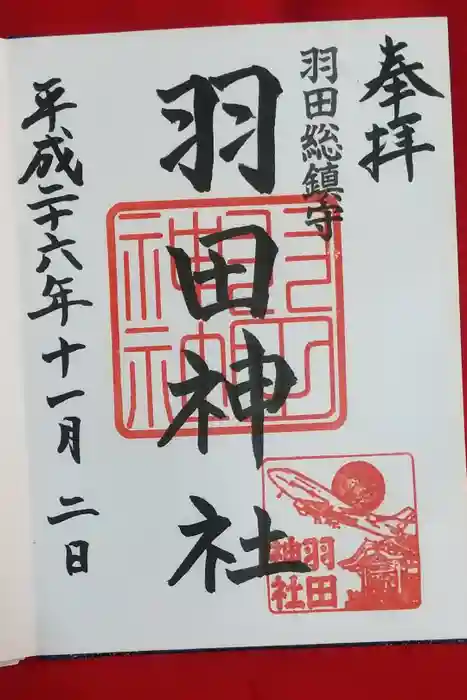 奉拝
羽田総鎮守
羽田神社
羽田
神社
羽田
神社
平成二十六年十一月二日